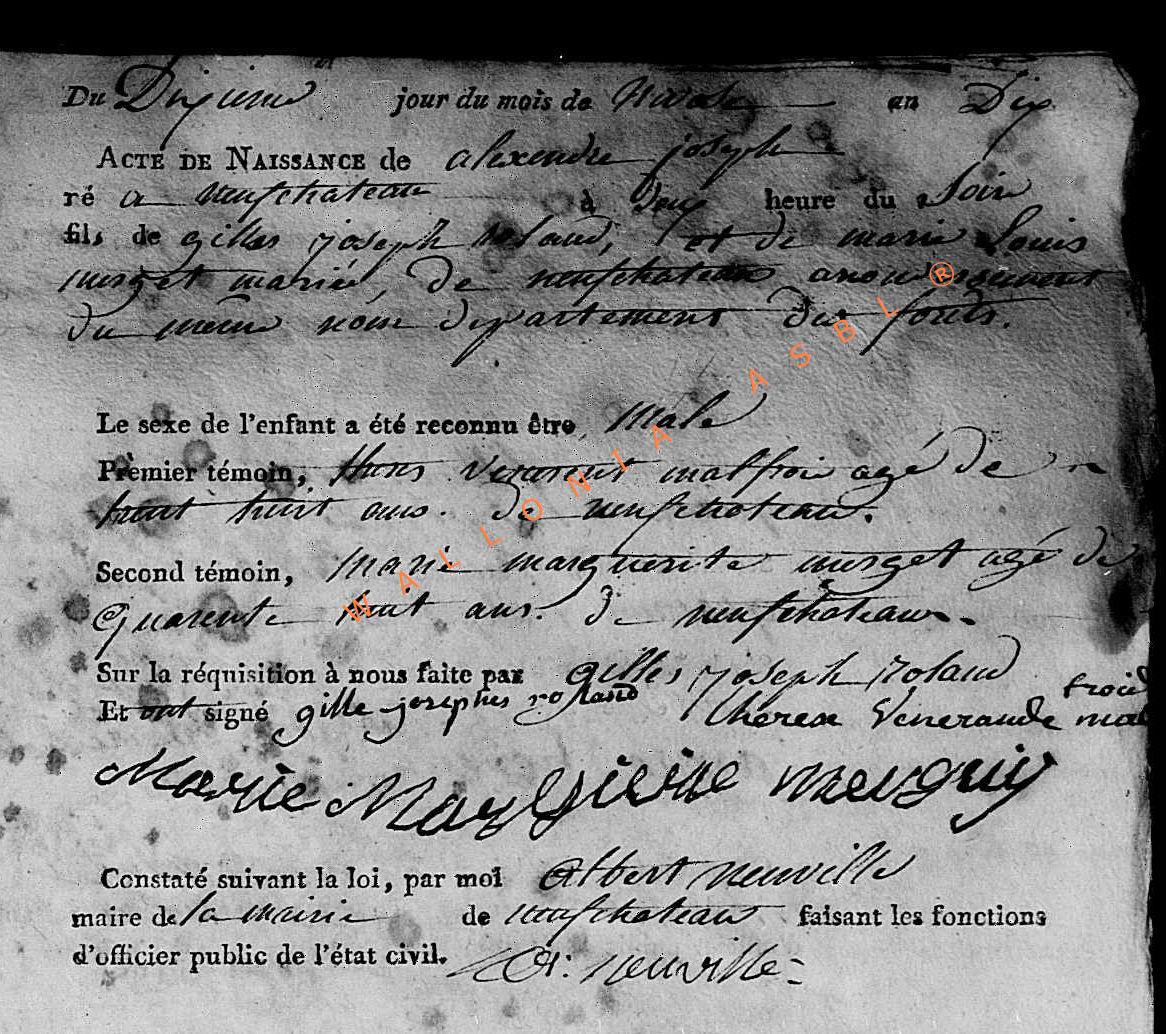 Du Dixieme jour du mois de Nivose an Dix
ACTE DE NAISSANCE de alexendre joseph
né a neufchateau à deux heure du Soir
fils de gilles joseph Roland, et de marie Louis
marié, de neufchateau
du meme nom departement des forets.
Le sexe de l'enfant a été reconnu être Male
Prèmier témoin, malfroi agé de
huit ans. de neufchateau.
Second témoin, Marie marguerite agé de
quarente huit ans. de neufchateau.
Sur la réquisition à nous faite par gilles joseph Roland
Et ont signé gille josephes roland therese Venerande mal
froid
Marie
Constaté suivant la loi, par moi Albert neuville
maire de la mairie de neufchateau faisant les fonctions
d'officier public de l'état civil. A. neuville
WALLONIA ASBL ®